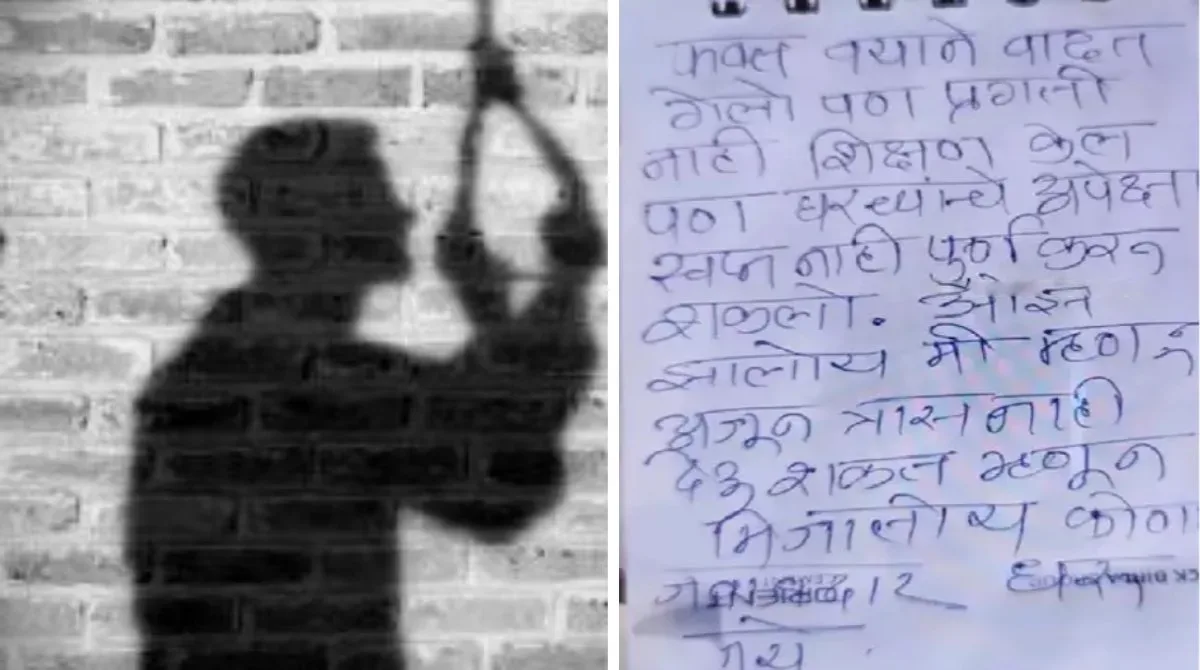 फक्त वयाने वाढत
गेलो पण प्रगती
नाही शिक्षण केल
पण घरच्यांचे अपेक्षा
स्वप्न नाही पुर्ण करू न
शकलो.
झालोय मी म्हणून
अजून त्रास नाही
देऊ शकत म्हणून
मी जातोय कोण